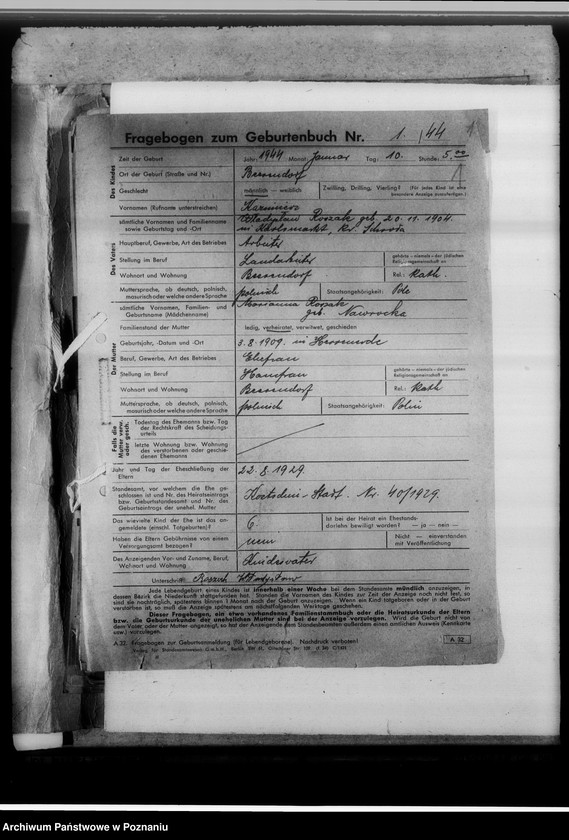 Fragebogen zum Geburtenbuch Nr. 1. /44
Des Kindes
Zeit der Geburt Jahr: 1944 Monat: Januar Tag: 10. Stunde: 5.00
Ort der Geburt (Straße und Nr.)
Geschlecht männlich — weiblich Zwilling, Drilling, Vierling? (Für jedes Kind ist eine besondere Anzeige auszufertigen.)
Vornamen (Rufname unterstreichen) Kazimierz
Des Vaters
sämtliche Vornamen und Familienname Władysław Roszak geb. 20.11.1904.
sowie Geburtstag und -Ort in
Hauptberuf, Gewerbe, Art des Betriebes Arbeiter
Stellung im Beruf Landarbeiter gehörte – niemals – der jüdischen Religionsgemeinschaft an
Wohnort und Wohnung Rel.: Kath.
Muttersprache, ob deutsch, polnisch, masurisch oder welche andere Sprache polnisch Staatsangehörigkeit: Pole
Der Mutter
sämtliche Vornamen, Familien- und Marianna Roszak
Geburtsname (Mädchenname) geb. Nawrocka
Familienstand der Mutter ledig, verheiratet, verwitwet, geschieden
Geburtsjahr, -Datum und -Ort 3.8.1909. in
Beruf, Gewerbe, Art des Betriebes Ehefrau
Stellung im Beruf Hausfrau gehörte – niemals – der jüdischen Religionsgemeinschaft an
Wohnort und Wohnung Rel.: Kath
Muttersprache, ob deutsch, polnisch, masurisch oder welche andere Sprache polnisch Staatsangehörigkeit: Polin
Falls die Mutter verw. oder gesch.
Todestag des Ehemanns bzw. Tag der Rechtskraft des Scheidungsurteils
letzte Wohnung bzw. Wohnung des verstorbenen oder geschiedenen Ehemanns
Jahr und Tag der Eheschließung der Eltern 22.8.1929.
Standesamt, vor welchem die Ehe geschlossen ist und Nr. des Heiratseintrags bzw. Geburtsstandesamt und Nr. des Geburtseintrags der unehel. Mutter Nr. 40/1929.
Das wievielte Kind der Ehe ist das angemeldete (einschl. Totgeburten)? 6. Ist bei der Heirat ein Ehestandsdarlehn bewilligt worden? — ja — nein —
Haben die Eltern Gebührnisse von einem Versorgungsamt bezogen? nein Nicht — einverstanden mit Veröffentlichung
Des Anzeigenden Vor- und Zuname, Beruf, Wohnort und Wohnung Kindesvater
Unterschrift: Roszak Władysław
Jede Lebendgeburt eines Kindes ist innerhalb einer Woche bei dem Standesamte mündlich anzuzeigen, in
dessen Bezirk die Niederkunft stattgefunden hat. Stunden die Vornamen des Kindes zur Zeit der Anzeige noch nicht fest, so
sind sie nachträglich, spätestens binnen 1 Monat nach der Geburt anzuzeigen. Wenn ein Kind totgeboren oder in der Geburt
verstorben ist, so muß die Anzeige spätestens am nächstfolgenden Werktage geschehen.
Dieser Fragebogen, ein etwa vorhandenes Familienstammbuch oder die Heiratsurkunde der Eltern
bzw. die Geburtsurkunde der unehelichen Mutter sind bei der Anzeige vorzulegen. Wird die Geburt nicht von
dem Vater oder der Mutter angezeigt, so hat der Anzeigende dem Standesbeamten außerdem einen amtlichen Ausweis (Kennkarte
usw.) vorzulegen.
A 32 Fragebogen zur Geburtenanmeldung (für Lebendgeborene). Nachdruck verboten! A 32
Verlag für Standesamtswesen G.m.b.H., Berlin SW 61, Gitschiner Str. 109
Archiwum Państwowe w Poznaniu